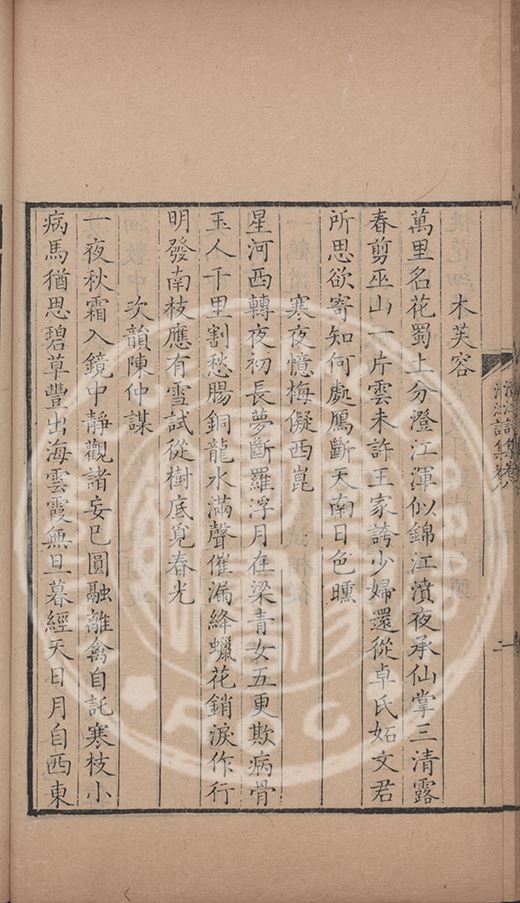 木芙容
萬里名花蜀土分澄江渾似錦江濆夜承仙掌三清露
春剪巫山一片雲未許王家誇少婦還從卓氏妬文君
所思欲寄知何處鴈斷天南日色曛
寒夜憶梅儗西崑
星河西轉夜初長夢斷羅浮月在梁青女五更欺病骨
玉人千里割愁腸銅龍水滿聲催漏絳蠟花銷淚作行
明發南枝應有雪試從樹底覓春光
次韻陳仲謀
一夜秋霜入鏡中靜觀諸妄已圓融離禽自託寒枝小
病馬猶思碧草豐出海雲霞無旦暮經天日月自西東